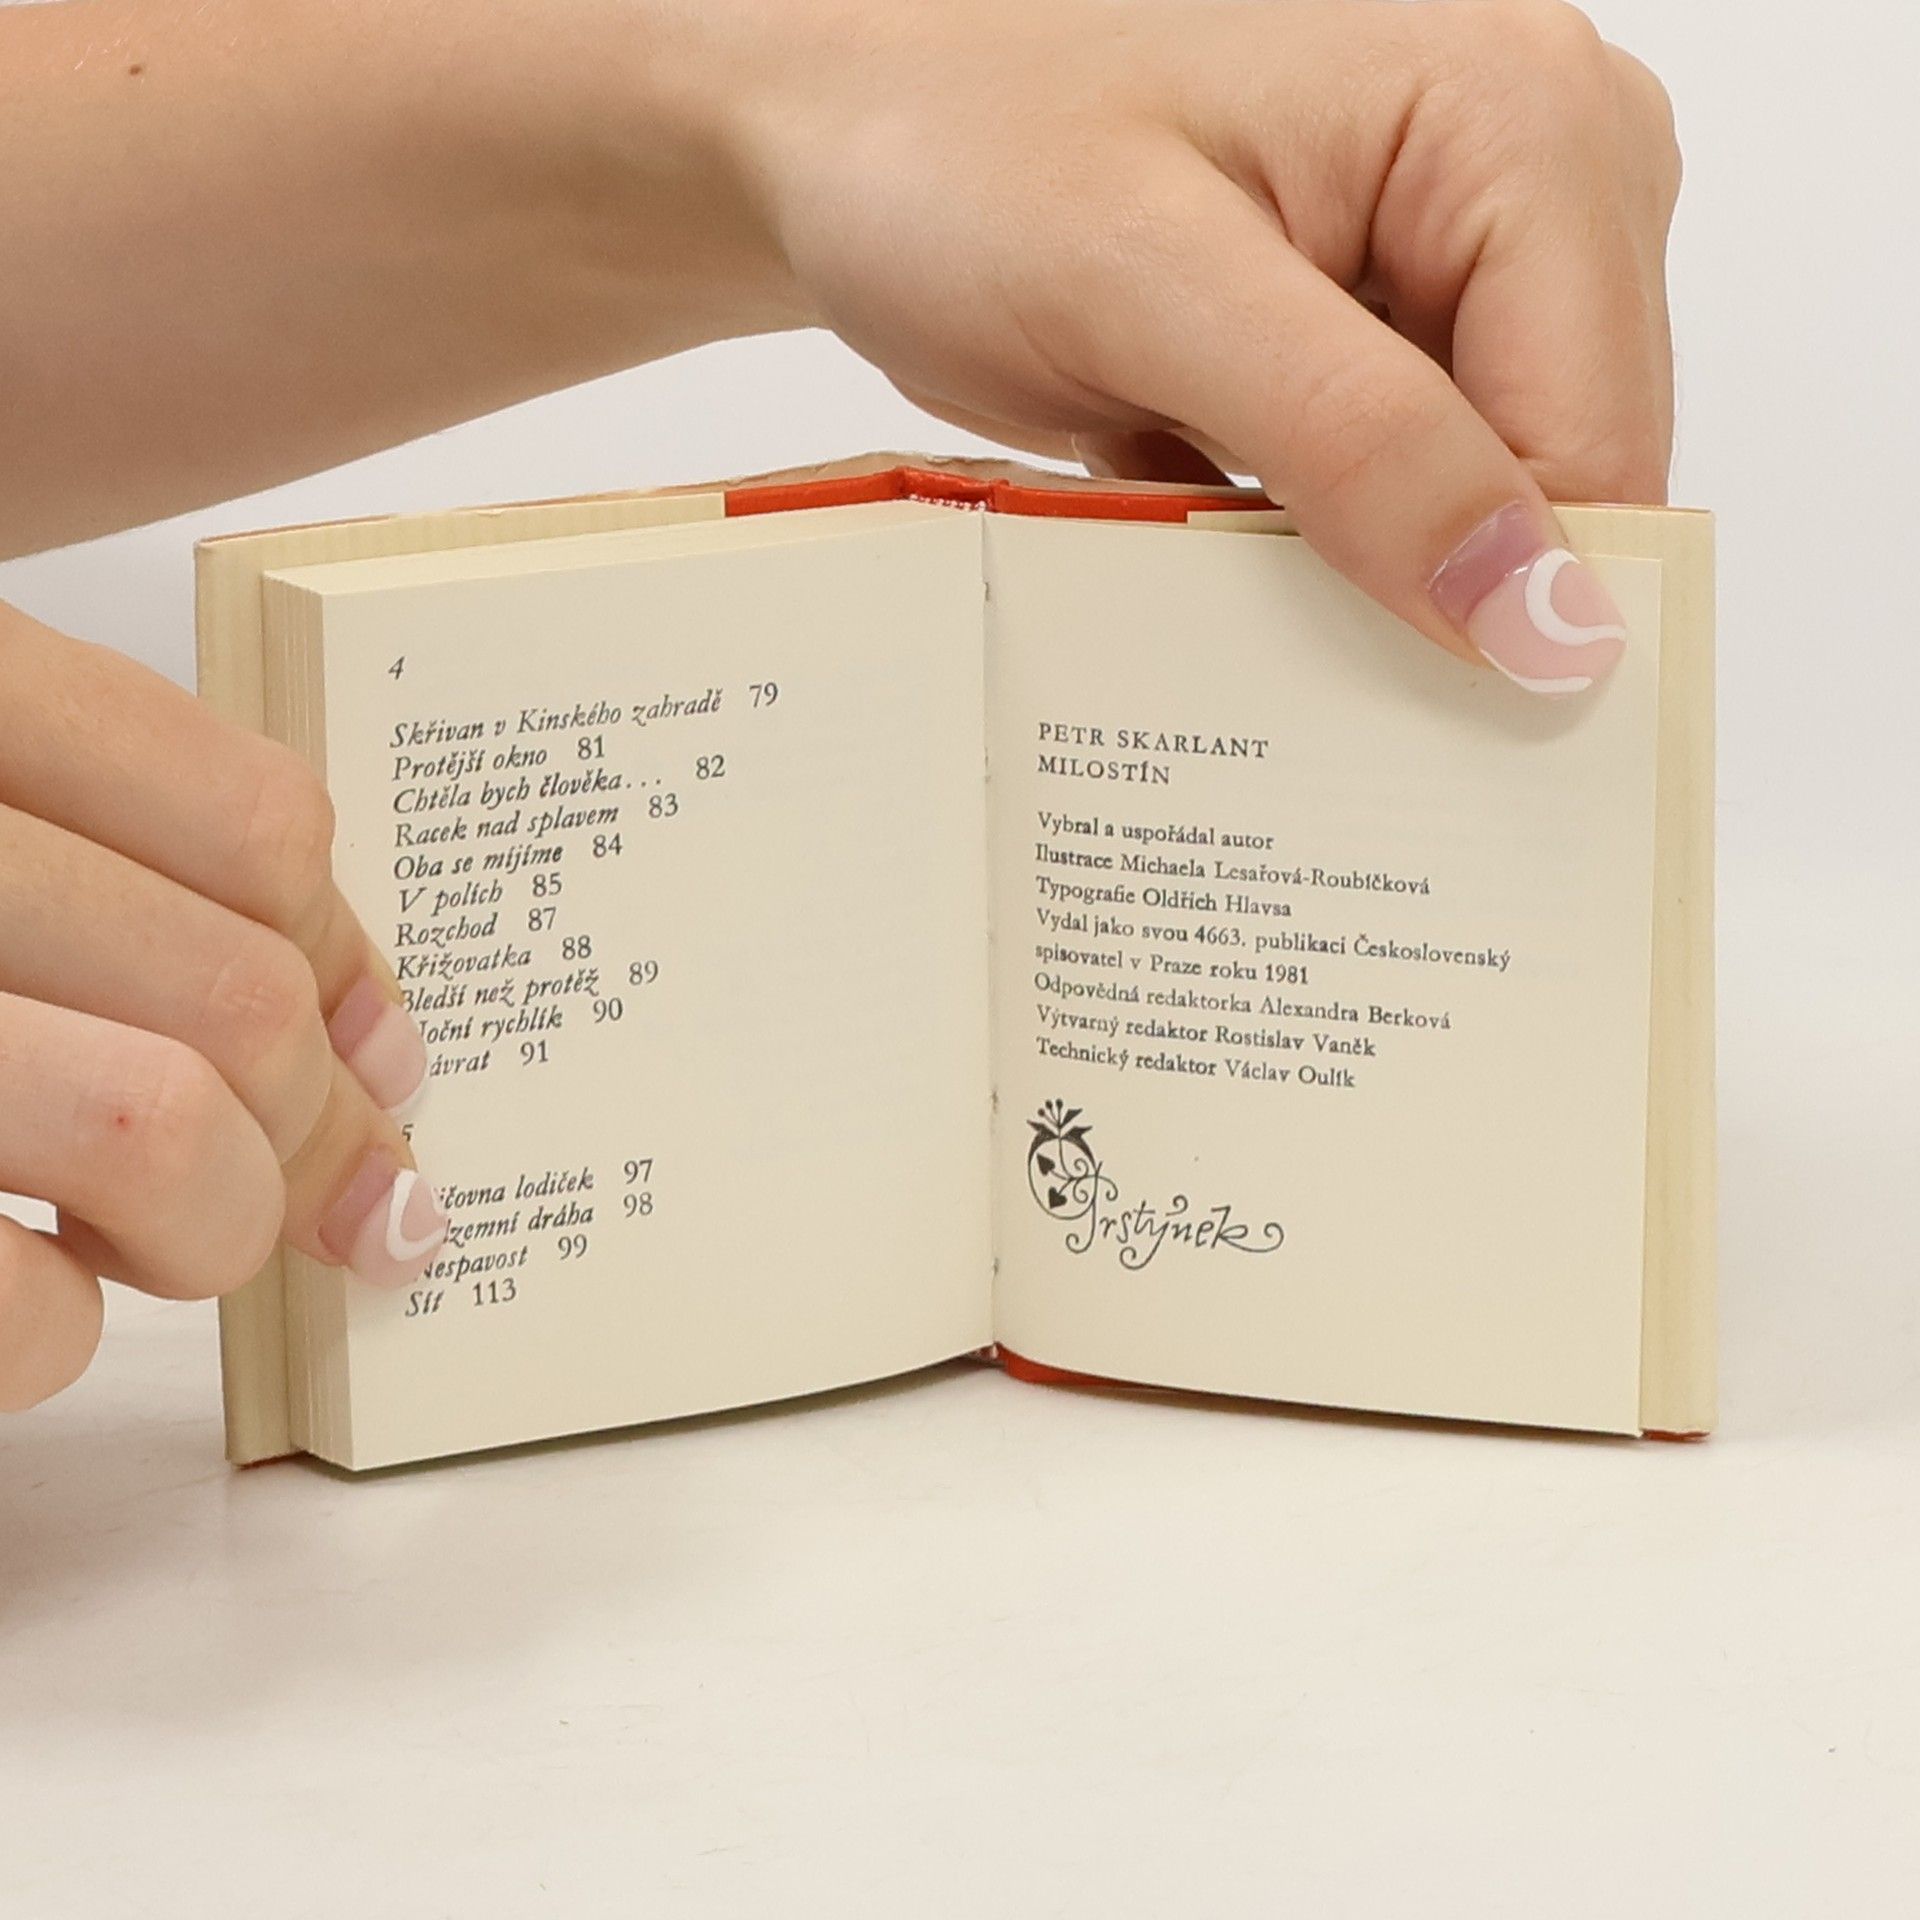 4
Skřivan v Kinského zahradě 79
Protější okno 81
Chtěla bych člověka... 82
Racek nad splavem 83
Oba se míjíme 84
V polích 85
Rozchod 87
Křižovatka 88
Bledší než protěž 89
Noční rychlík 90
ávrat 91
5
čovna lodiček 97
zemní dráha 98
Nespavost 99
Síť 113
PETR SKARLANT
MILOSTÍN
Vybral a uspořádal autor
Ilustrace Michaela Lesařová-Roubíčková
Typografie Oldřich Hlavsa
Vydal jako svou 4663. publikaci Československý
spisovatel v Praze roku 1981
Odpovědná redaktorka Alexandra Berková
Výtvarný redaktor Rostislav Vaněk
Technický redaktor Václav Oulík
Trstýnek